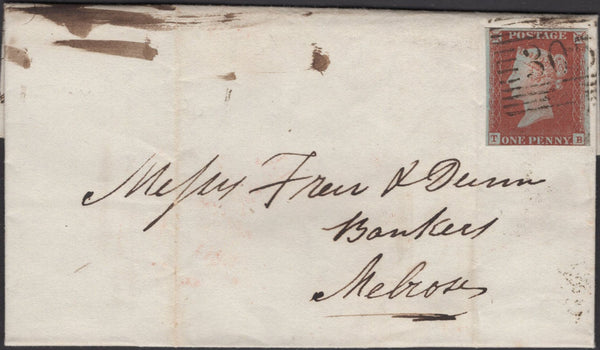 POSTAGE
30
T B
ONE PENNY
Messrs Freer & Dunn
Bankers
Melrose